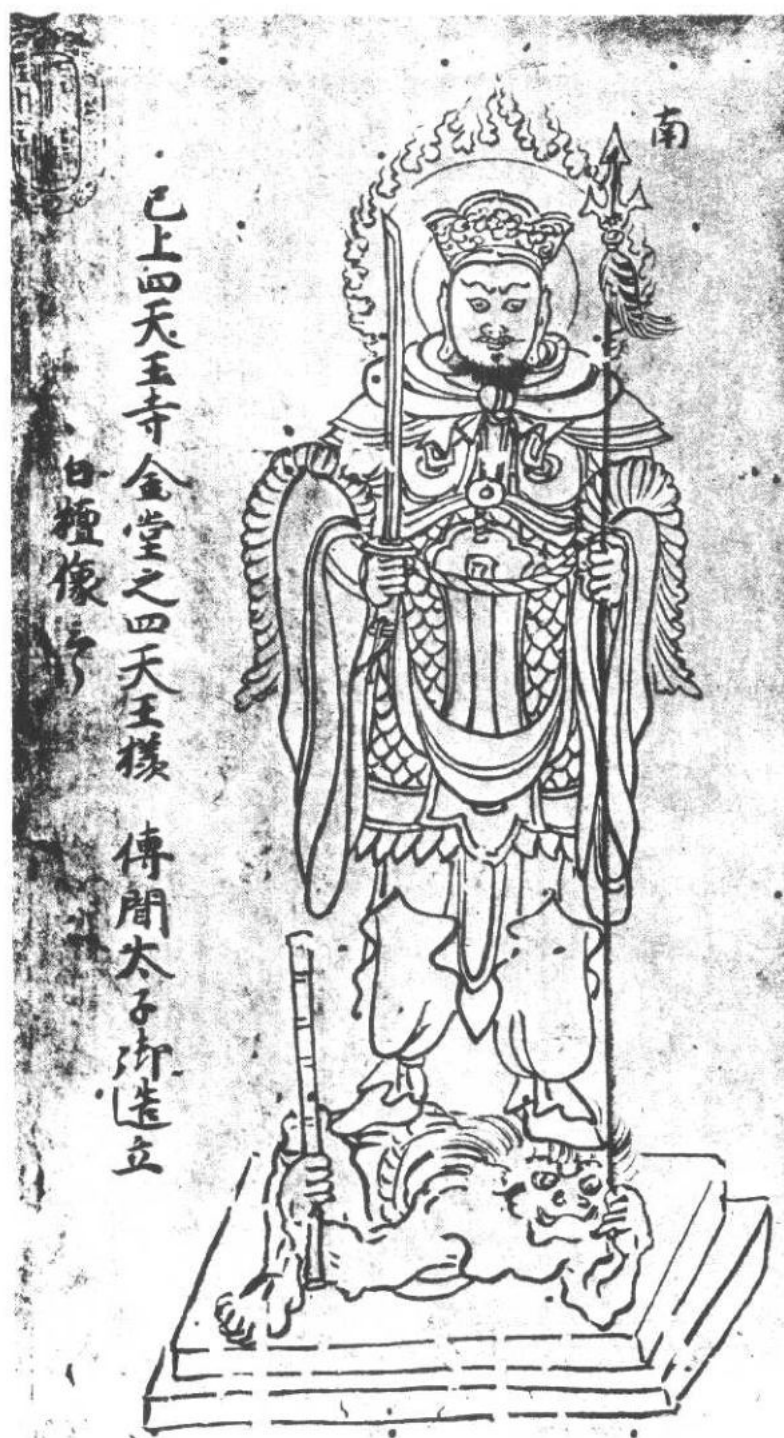 南
已上四天王寺金堂之四天王様 傳聞太子御造立
白檀像云々